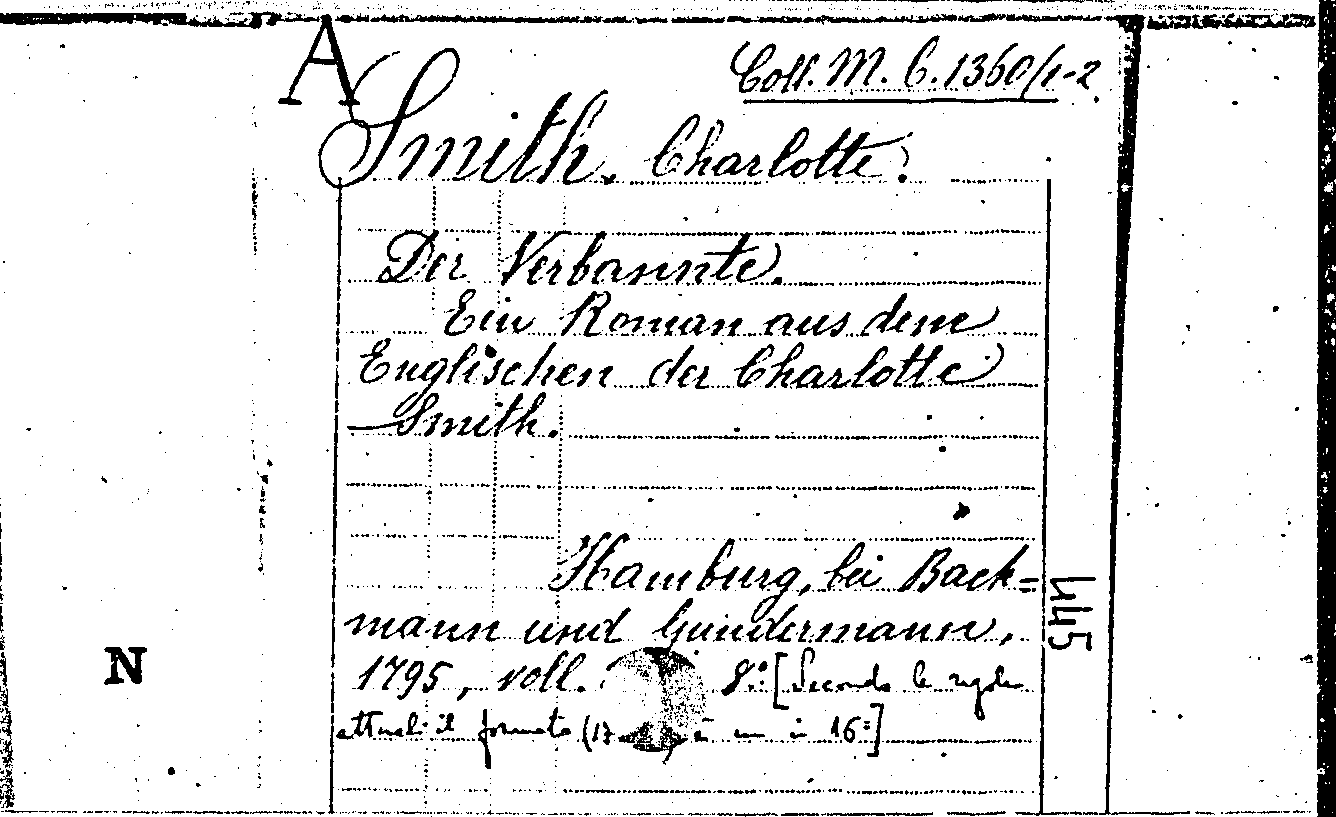 A
Coll. M. C. 1360/1-2
Smith. Charlotte.
Der Verbannte.
Ein Roman aus dem
Englischen der Charlotte
Smith.
Hamburg, bei Back=
mann und Gundermann,
445
N
1795, voll. 8.° [Secondo le regole
attuali il formato (17 è un in 16°]